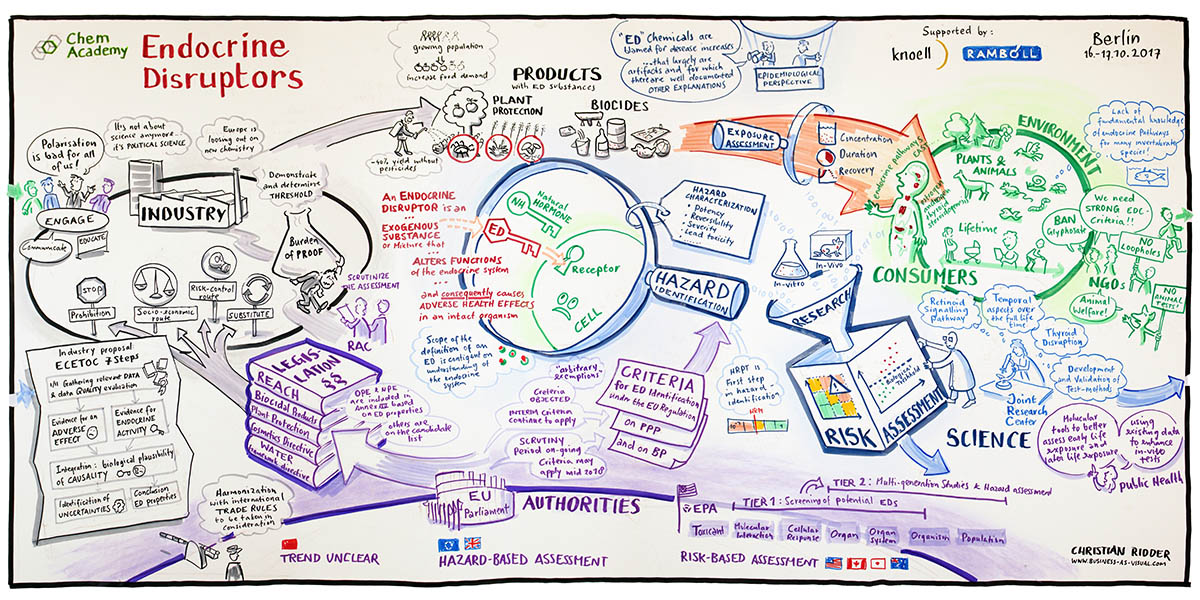 Chem
Academy
Endocrine
Disruptors
growing population
increase food demand
PRODUCTS
with ED substances
PLANT
PROTECTION
BIOCIDES
~40% yield without
pesticides
"ED" Chemicals are
blamed for disease increases
...that largely are
artifacts and for which
there are well documented
OTHER EXPLANATIONS
EPIDEMIOLOGICAL
PERSPECTIVE
Supported by:
knoell
RAMBOLL
Berlin
16.-17.10.2017
Polarisation
is bad for all
of us!
It's not about
science anymore...
it's POLITICAL SCIENCE
Europe is
loosing out on
new chemistry
Demonstrate
and determine
THRESHOLD
ENGAGE
Communicate
EDUCATE
INDUSTRY
Burden
of PROOF
STOP
Prohibition
Socio-economic
route
Risk-control
route
SUBSTITUTE
SCRUTINIZE
THE ASSESSMENT
RAC
An ENDOCRINE
DISRUPTOR is an
...
EXOGENOUS
SUBSTANCE
or Mixture that
...
ALTERS FUNCTIONS
of the endocrine system
...
and consequently causes
ADVERSE HEALTH EFFECTS
in an intact organism
Natural
HORMONE
NH
ED
Receptor
CELL
HAZARD
CHARACTERIZATION
• Potency
• Reversibility
• Severity
• Lead toxicity
HAZARD
IDENTIFICATION
EXPOSURE
ASSESSMENT
Concentration
Duration
Recovery
Endocrine pathways
EAST
thyroid
development
ENVIRONMENT
PLANTS &
ANIMALS
Lifetime
CONSUMERS
Lack of
fundamental knowledge
of endocrine Pathways
for many invertebrate
species!
We need
STRONG EDC-
Criteria!!
BAN
Glyphosate
NO
Loopholes
NO
ANIMAL
TESTS!
NGOs
Animal
Welfare!
In-Vitro
In-Vivo
RESEARCH
RISK
ASSESSMENT
Retinoid
Signalling
Pathway
Temporal
aspects over
the full life
time
Thyroid
Disruption
Development
and Validation of
Test-methods
Joint
Research
Center
SCIENCE
Molecular
tools to better
assess early life
exposure and
later life exposure
using
existing data
to enhance
in-vivo
tests
public Health
Industry proposal
ECETOC 7 Steps
Gathering relevant DATA
& data Quality evaluation
Evidence for an
ADVERSE
EFFECT
Evidence for
ENDOCRINE
ACTIVITY
Integration: biological plausibility
of CAUSALITY
Identification of
UNCERTAINTIES
Conclusion
ED properties
LEGISLATION
§§
REACH
Biocidal Products
Plant Protection
Cosmetics Directive
WATER
framework directive
OPE & NPE
are included in
Annex XIV based
on ED properties
others are
on the candidate
list
Scope of the
definition of an
ED is contingent on
understanding of
the endocrine
system
"arbitrary
exemptions"
Criteria
OBJECTED
INTERIM criteria
continue to apply
SCRUTINY
Period on-going
Criteria may
apply mid 2018
CRITERIA
for ED Identification
under the EU Regulation
on PPP
and on BP
HRPT is
First step
in hazard
identification
Harmonization
with international
TRADE RULES
to be taken in
consideration
EU
Parliament
AUTHORITIES
EPA
TIER 2: Multi-generation Studies & Hazard assessment
TIER 1: Screening of potential EDs
Toxicant
Molecular
Interaction
Cellular
Response
Organ
Organ
System
Organism
Population
TREND UNCLEAR
HAZARD-BASED ASSESSMENT
RISK-BASED ASSESSMENT
CHRISTIAN RIDDER
WWW.BUSINESS-AS-VISUAL.COM